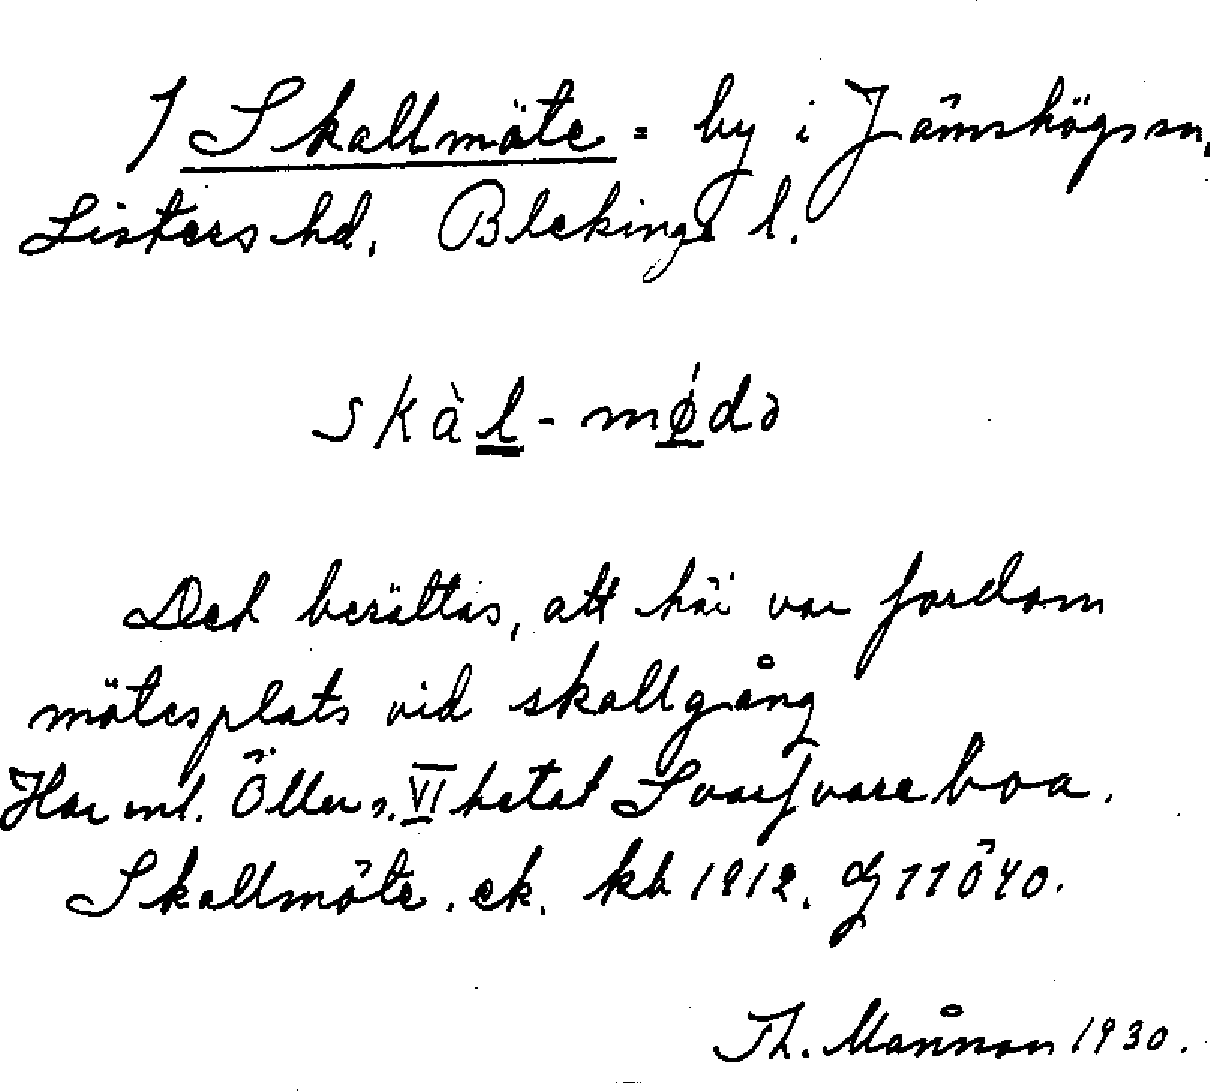 1 Skallmöte = by i Jämshögs sn,
Listers hd. Blekinge l.
skàl - mǿdə
Det berättas, att här var fordom
mötesplats vid skallgång
Har enl. Öller s. VI hetat Svarfvareboa.
Skallmöte. ek. kb 1912. 11 ö 40.
Th. Månson 1930.